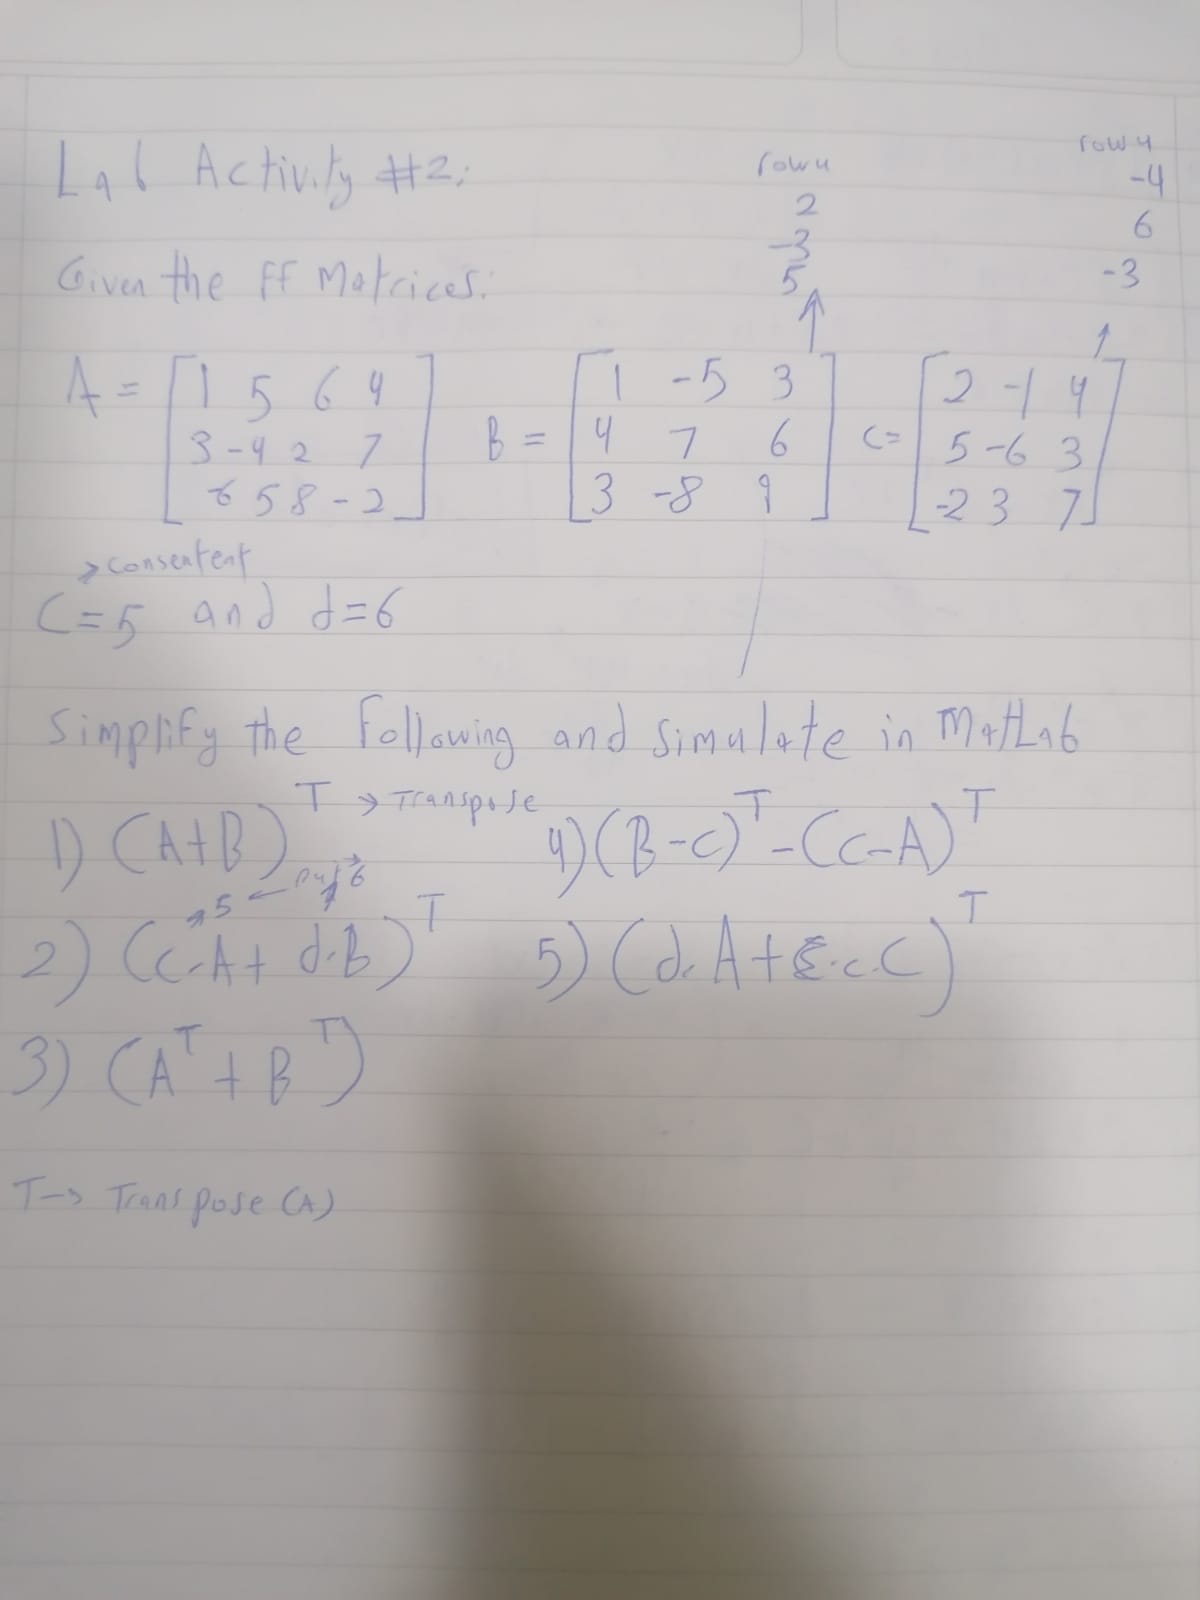 Lab Activity #2:
row 4
2
-3
5
row 4
-4
6
-3
Given the ff Matrices:
A = [1 5 6 4
3 -4 2 7
6 5 8 -2]
B = [1 -5 3
4 7 6
3 -8 9]
C = [2 -1 4
5 -6 3
-2 3 7]
→ consentent
C = 5 and d = 6
Simplify the following and simulate in Matlab
1) (A+B)^T → Transpose
5 ← → 6
2) (C·A + d·B)^T
3) (A^T + B^T)
4) (B-C)^T - (C-A)^T
5) (d·A + c·C)^T
T → Transpose (A)